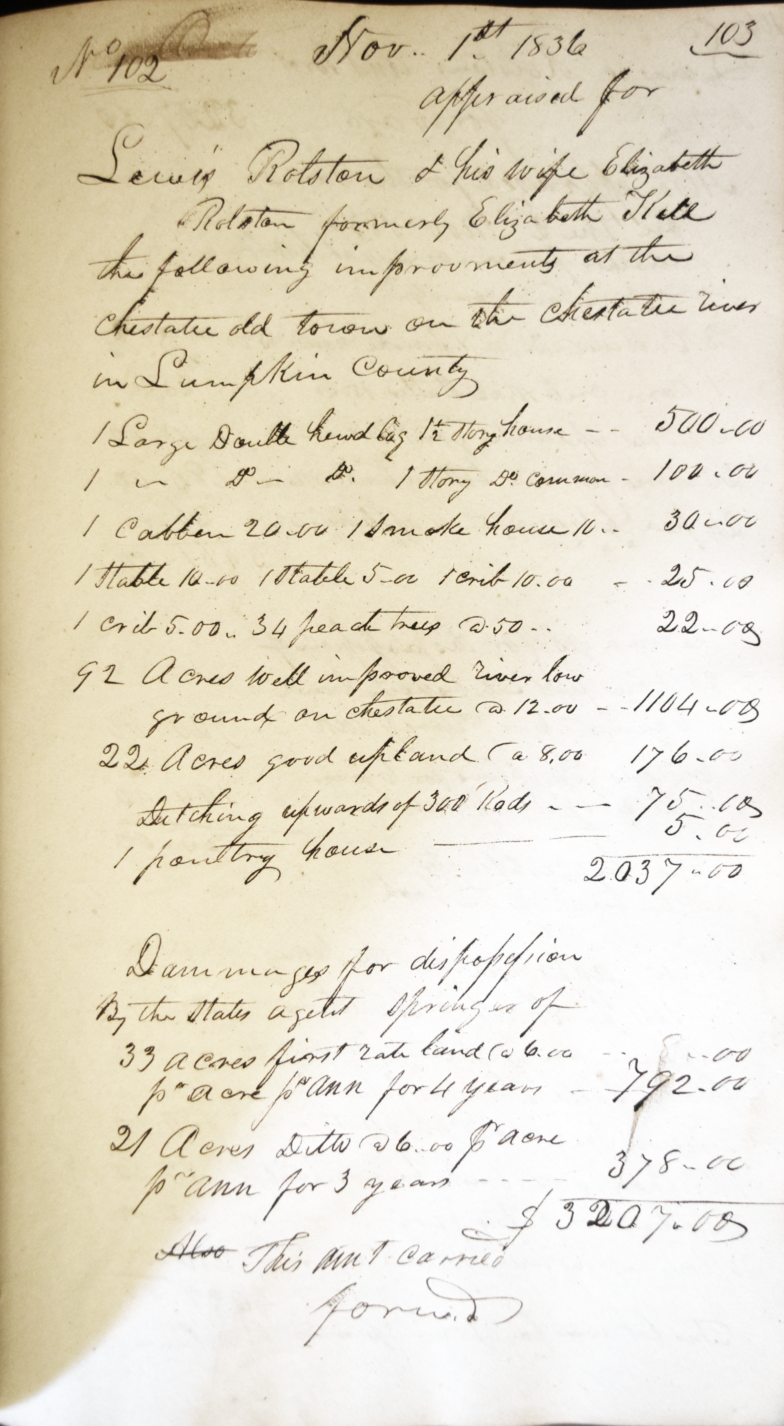 No 102 Nov. 1st 1836 103
appraised for
Lewis Rolston & his wife Elizabeth
Rolston formerly Elizabeth Kell
the following improvments at the
chestatee old town on the chestatee river
in Lumpkin County
1 Large Double hewd log 1½ story house -- 500.00
1 " Do - Do. 1 story Do common - 100.00
1 Cabben 20.00 1 smoke house 10.. 30.00
1 stable 10.00 1 stable 5.00 1 crib 10.00 - 25.00
1 crib 5.00.. 34 peach trees @ 50.. 22.00
92 Acres well improved river low
ground on chestatee @ 12.00 -- 1104.00
22 Acres good upland @ 8.00 176.00
Ditching upwards of 300 Rods -- 75.00
1 poultry house 5.00
2037.00
Dammages for dispossession
By the states agent springer of
33 acres first rate land @ 6.00 .00
pr acre pr Ann for 4 years - 792.00
21 Acres Ditto @ 6.00 pr acre
pr ann for 3 years ---- 378.00
$3207.00
Also This amt carried
forward